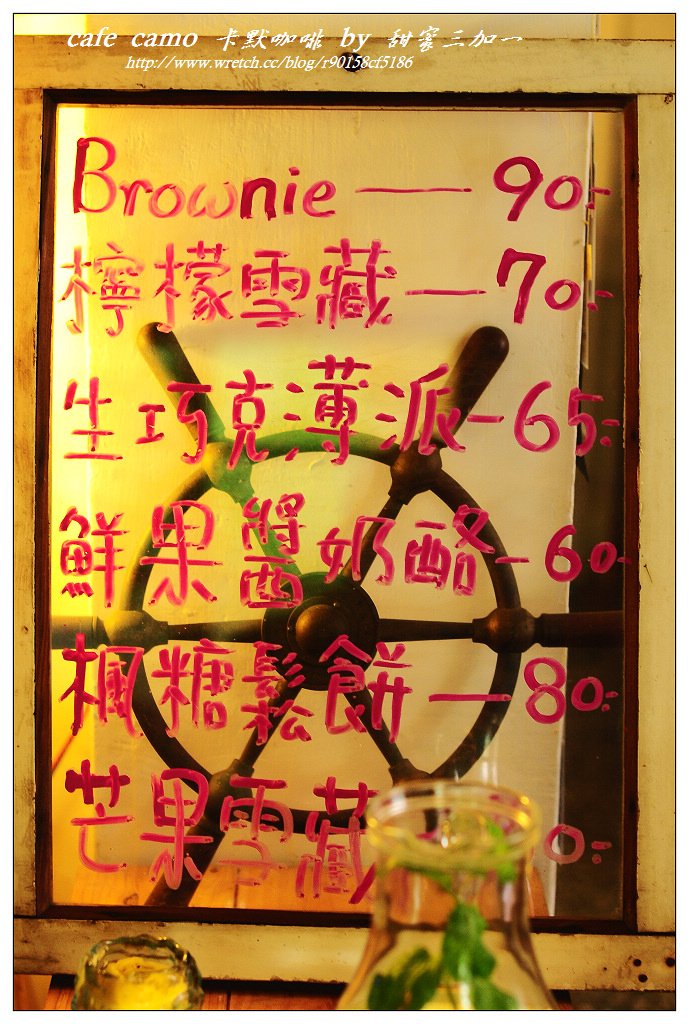 cafe camo 卡默咖啡 by 甜蜜三加一
http://www.wretch.cc/blog/r90158cf5186
Brownie — 90.-
檸檬雪藏 — 70.-
生巧克薄派 - 65.-
鮮果醬奶酪 - 60.-
楓糖鬆餅 — 80.-
芒果雪藏 0.-